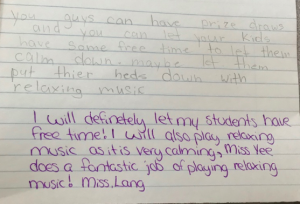 you guys can have prize draws
and you can let your kids
have some free time to let them
calm down. maybe let them
put thier heds down with
relaxing music
I will definetely let my students have
free time!! I will also play relaxing
music as it is very calming, Miss Yee
does a fantastic job of playing relaxing
music! Miss.Lang